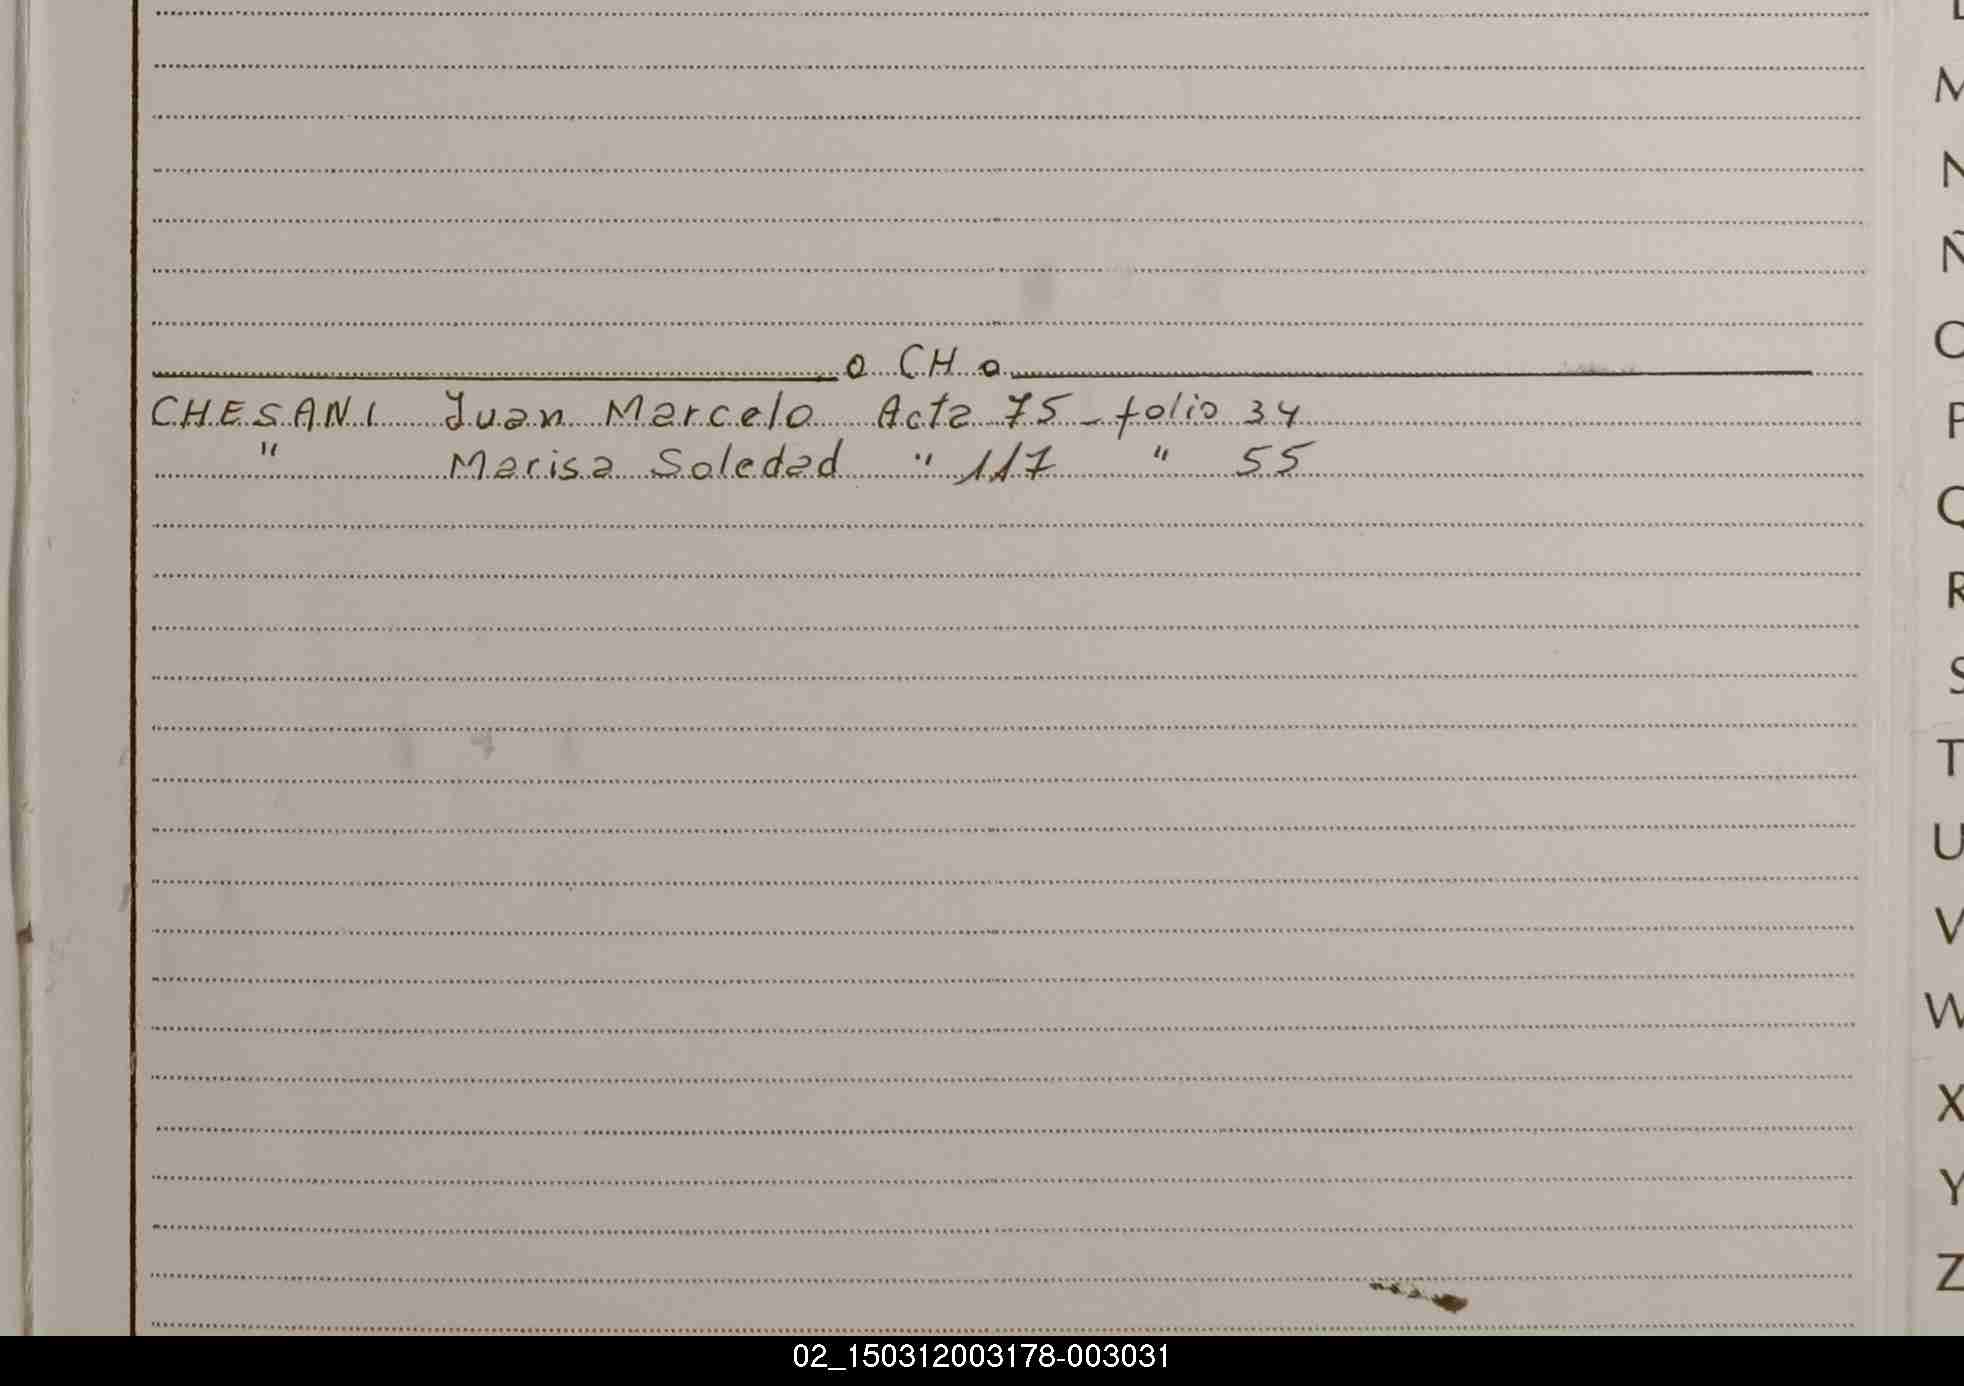 o CH o
CHESANI Juan Marcelo Acta 75 - folio 34
" Marisa Soledad " 117 " 55
M
N
Ñ
O
P
Q
R
S
T
U
V
W
X
Y
Z
02_150312003178-003031